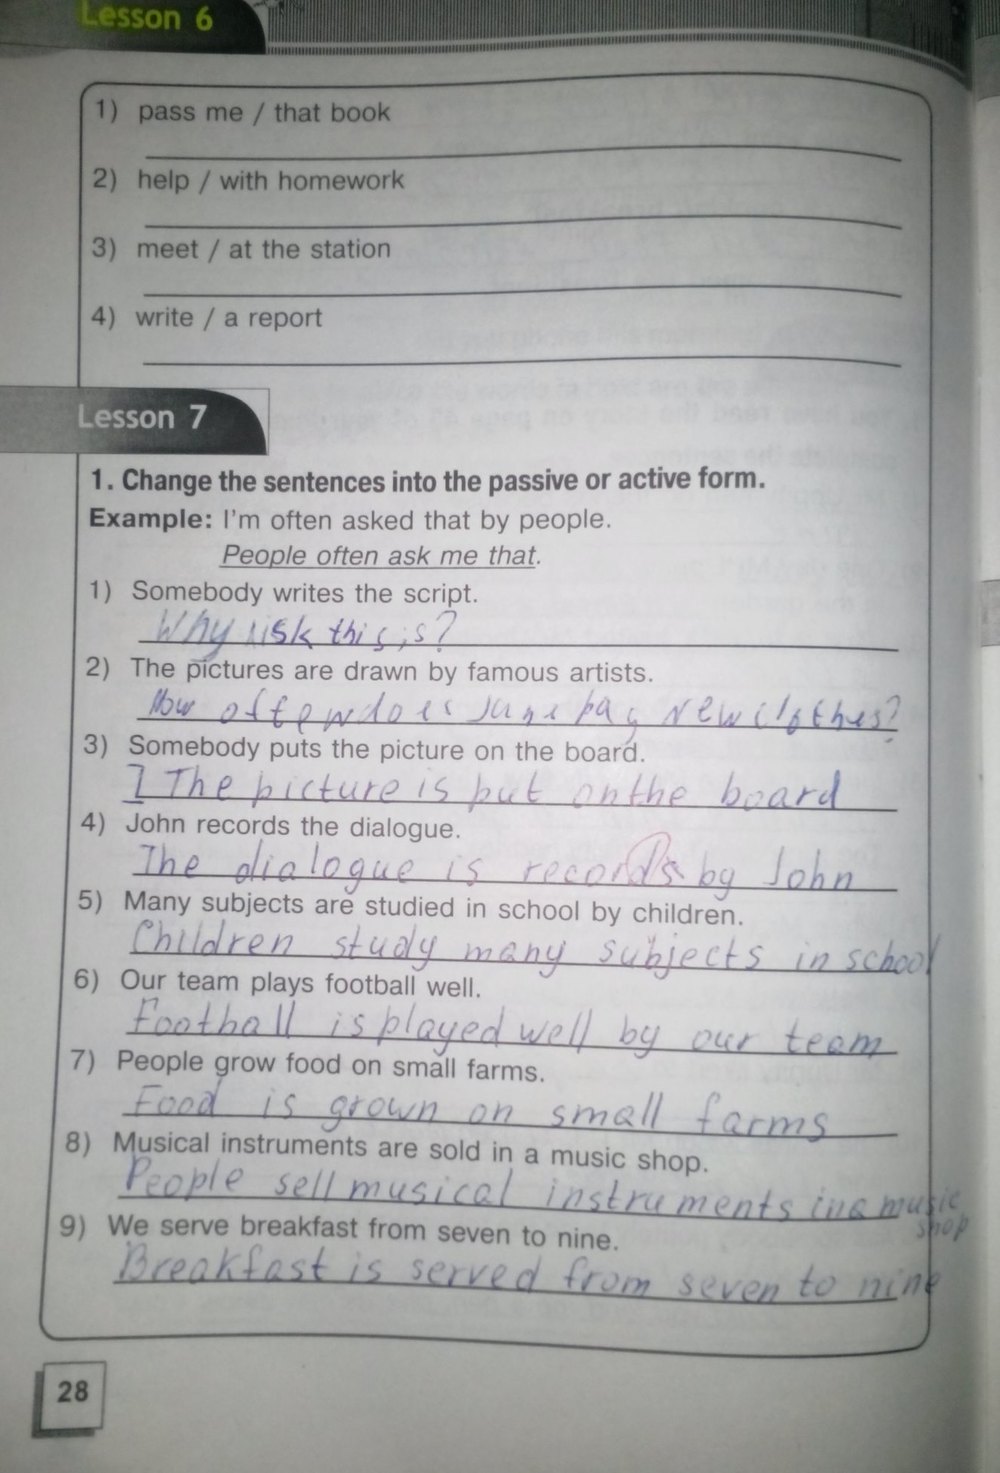 Lesson 6
1) pass me / that book
2) help / with homework
3) meet / at the station
4) write / a report
Lesson 7
1. Change the sentences into the passive or active form.
Example: I'm often asked that by people.
People often ask me that.
1) Somebody writes the script.
Why risk this is?
2) The pictures are drawn by famous artists.
How often does Jane new clothes?
3) Somebody puts the picture on the board.
I The picture is put on the board
4) John records the dialogue.
The dialogue is records by John
5) Many subjects are studied in school by children.
Children study many subjects in school
6) Our team plays football well.
Football is played well by our team
7) People grow food on small farms.
Food is grown on small farms
8) Musical instruments are sold in a music shop.
People sell musical instruments in a music
shop
9) We serve breakfast from seven to nine.
Breakfast is served from seven to nine
28